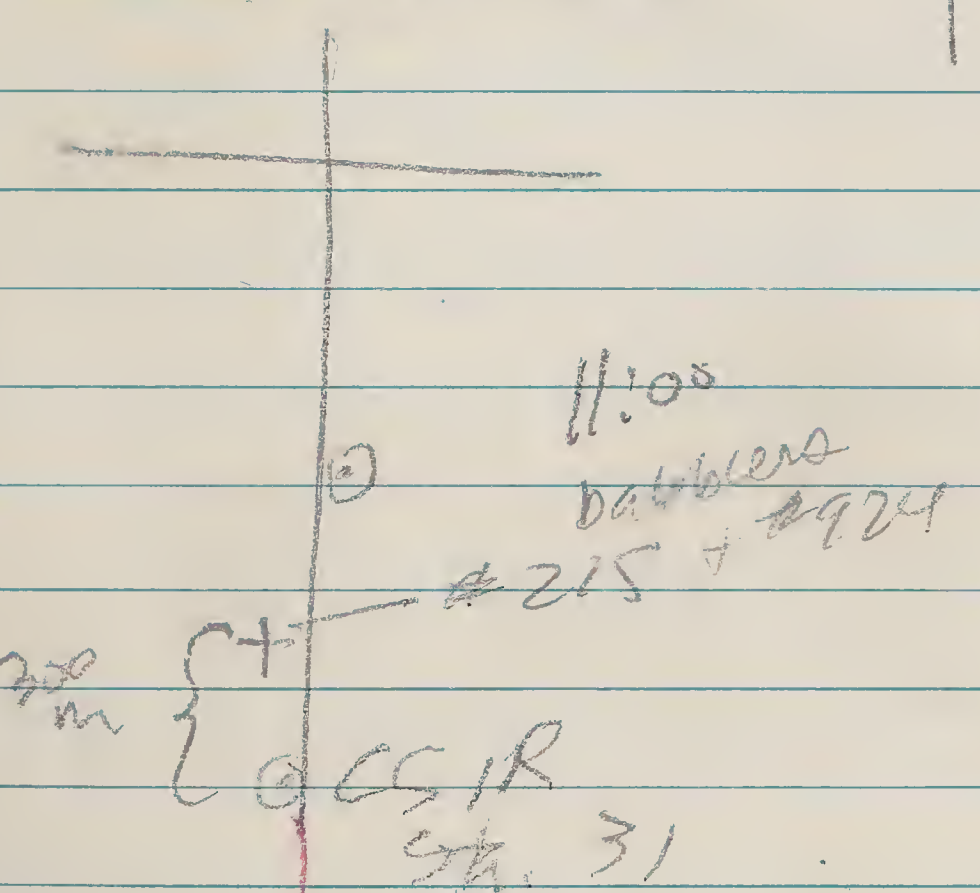 11:00
babblers
215 + 924
300
m
CSIR
Stn. 31